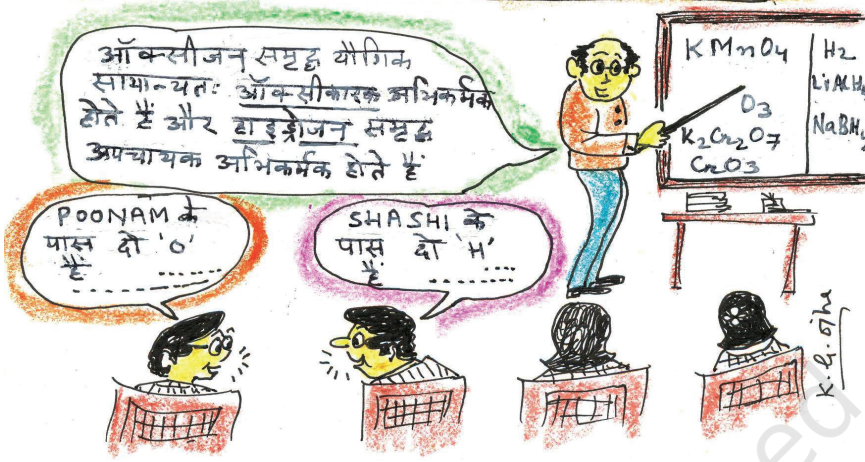 ऑक्सीजन समृद्ध यौगिक
सामान्यतः ऑक्सीकारक अभिकर्मक
होते हैं और हाइड्रोजन समृद्ध
अपचायक अभिकर्मक होते हैं
KMnO4
O3
K2Cr2O7
CrO3
H2
LiAlH4
NaBH
POONAM के
पास दो 'O'
हैं ..............
SHASHI के
पास दो 'H'
हैं ..............
K. G. ओझा
ed